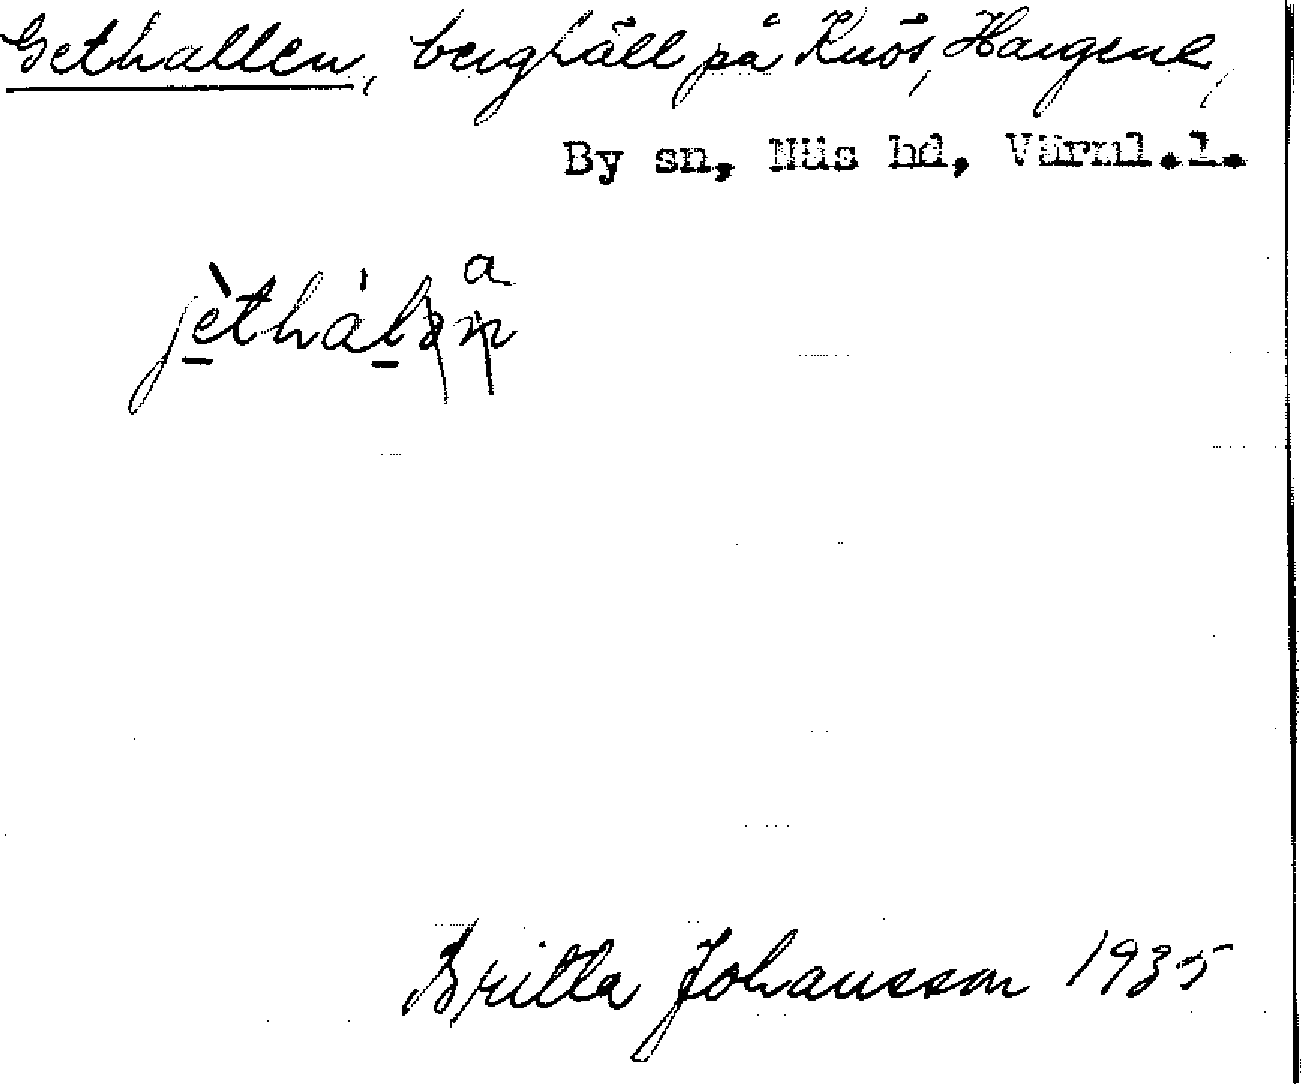 Gethallen, berghäll på Knös, Haugene,
By sn, Näs hd, Värml.l.
a
jèthálən
Britta Johansson 1935